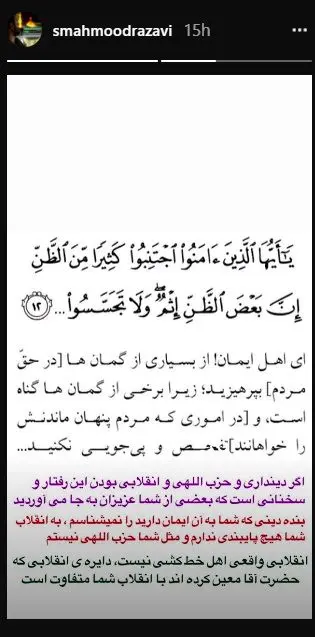 smahmoodrazavi 15h
يَٰٓأَيُّهَا ٱلَّذِينَ ءَامَنُوا۟ ٱجْتَنِبُوا۟ كَثِيرًا مِّنَ ٱلظَّنِّ
إِنَّ بَعْضَ ٱلظَّنِّ إِثْمٌ ۖ وَلَا تَجَسَّسُوا۟... ۝١٢
ای اهل ایمان! از بسیاری از گمان ها [در حقّ
مردم] بپرهیزید؛ زیرا برخی از گمان ها گناه
است، و [در اموری که مردم پنهان ماندنش
را خواهانند] تفحص و پی‌جویی نکنید...
اگر دینداری و حزب اللهی و انقلابی بودن این رفتار و
سخنانی است که بعضی از شما عزیزان به جا می آوردید
بنده دینی که شما به آن ایمان دارید را نمیشناسم ، به انقلاب
شما هیچ پایبندی ندارم و مثل شما حزب اللهی نیستم
انقلابی واقعی اهل خط کشی نیست، دایره ی انقلابی که
حضرت آقا معین کرده اند با انقلاب شما متفاوت است